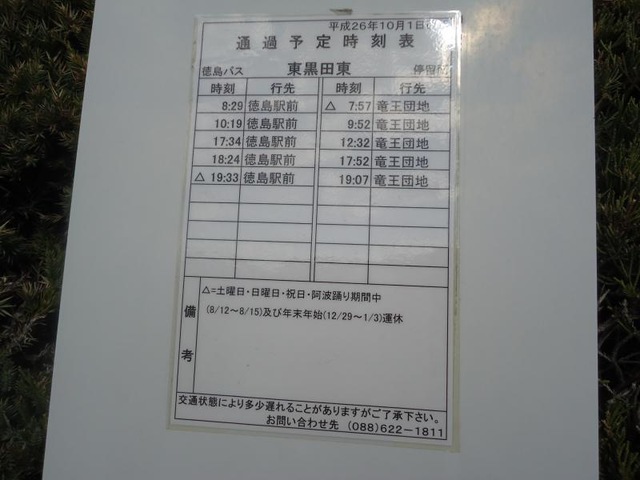 平成26年10月1日
通過予定時刻表
徳島バス 東黒田東 停留所
時刻 行先 時刻 行先
8:29 徳島駅前 △ 7:57 竜王団地
10:19 徳島駅前 9:52 竜王団地
17:34 徳島駅前 12:32 竜王団地
18:24 徳島駅前 17:52 竜王団地
△ 19:33 徳島駅前 19:07 竜王団地
備考
△=土曜日・日曜日・祝日・阿波踊り期間中
(8/12~8/15)及び年末年始(12/29~1/3)運休
交通状態により多少遅れることがありますがご了承下さい。
お問い合わせ先 (088)622-1811